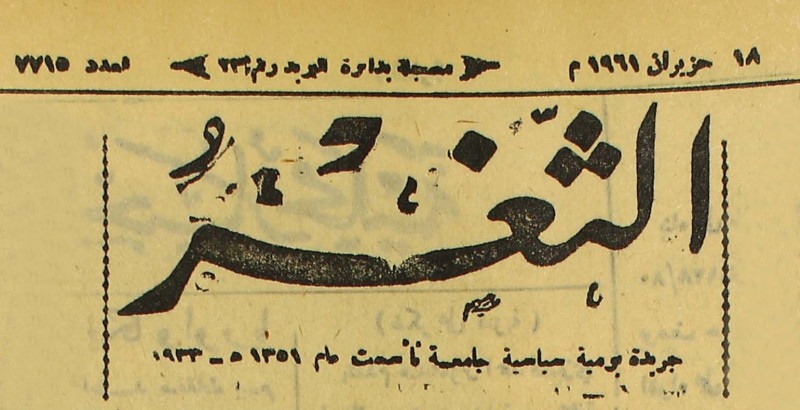 ١٨ حزيران ١٩٦١ م مسجلة بدائرة البريد رقم ٢٣٦ العدد ٧٧١٥
الثغر
جريدة يومية سياسية جامعة تأسست عام ١٣٥١ ه‍ ـ ١٩٣٣